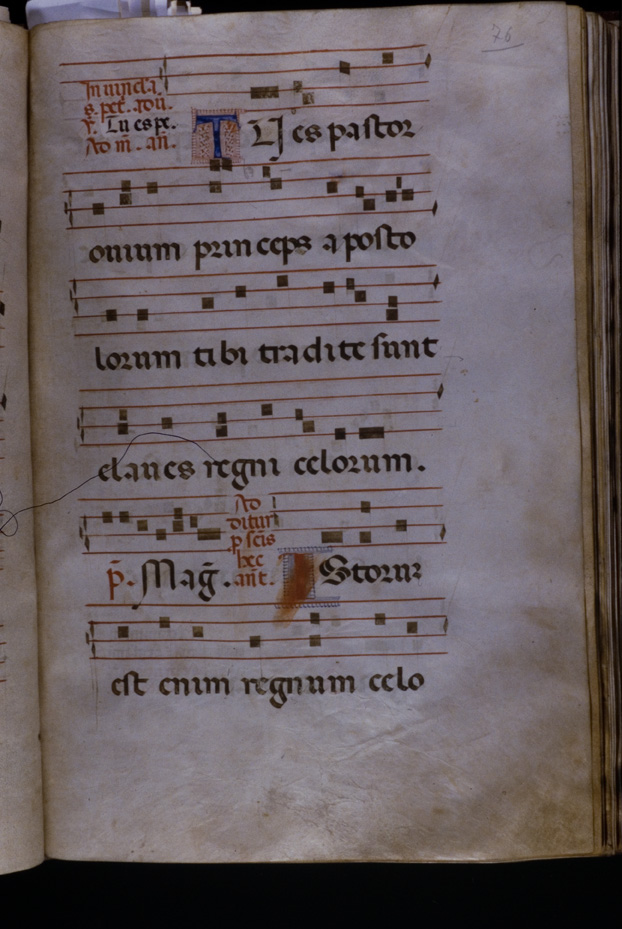 76
In uincl'a
s. pet. tou.
℣. Tu es pe.
Ad m. añ.
TU es pastor
ouium princeps aposto
lorum tibi tradite sunt
claues regni celorum.
Ad
ditur
p scīs
hec
ant.
p̄. Mag̃. IStorum
est enim regnum celo